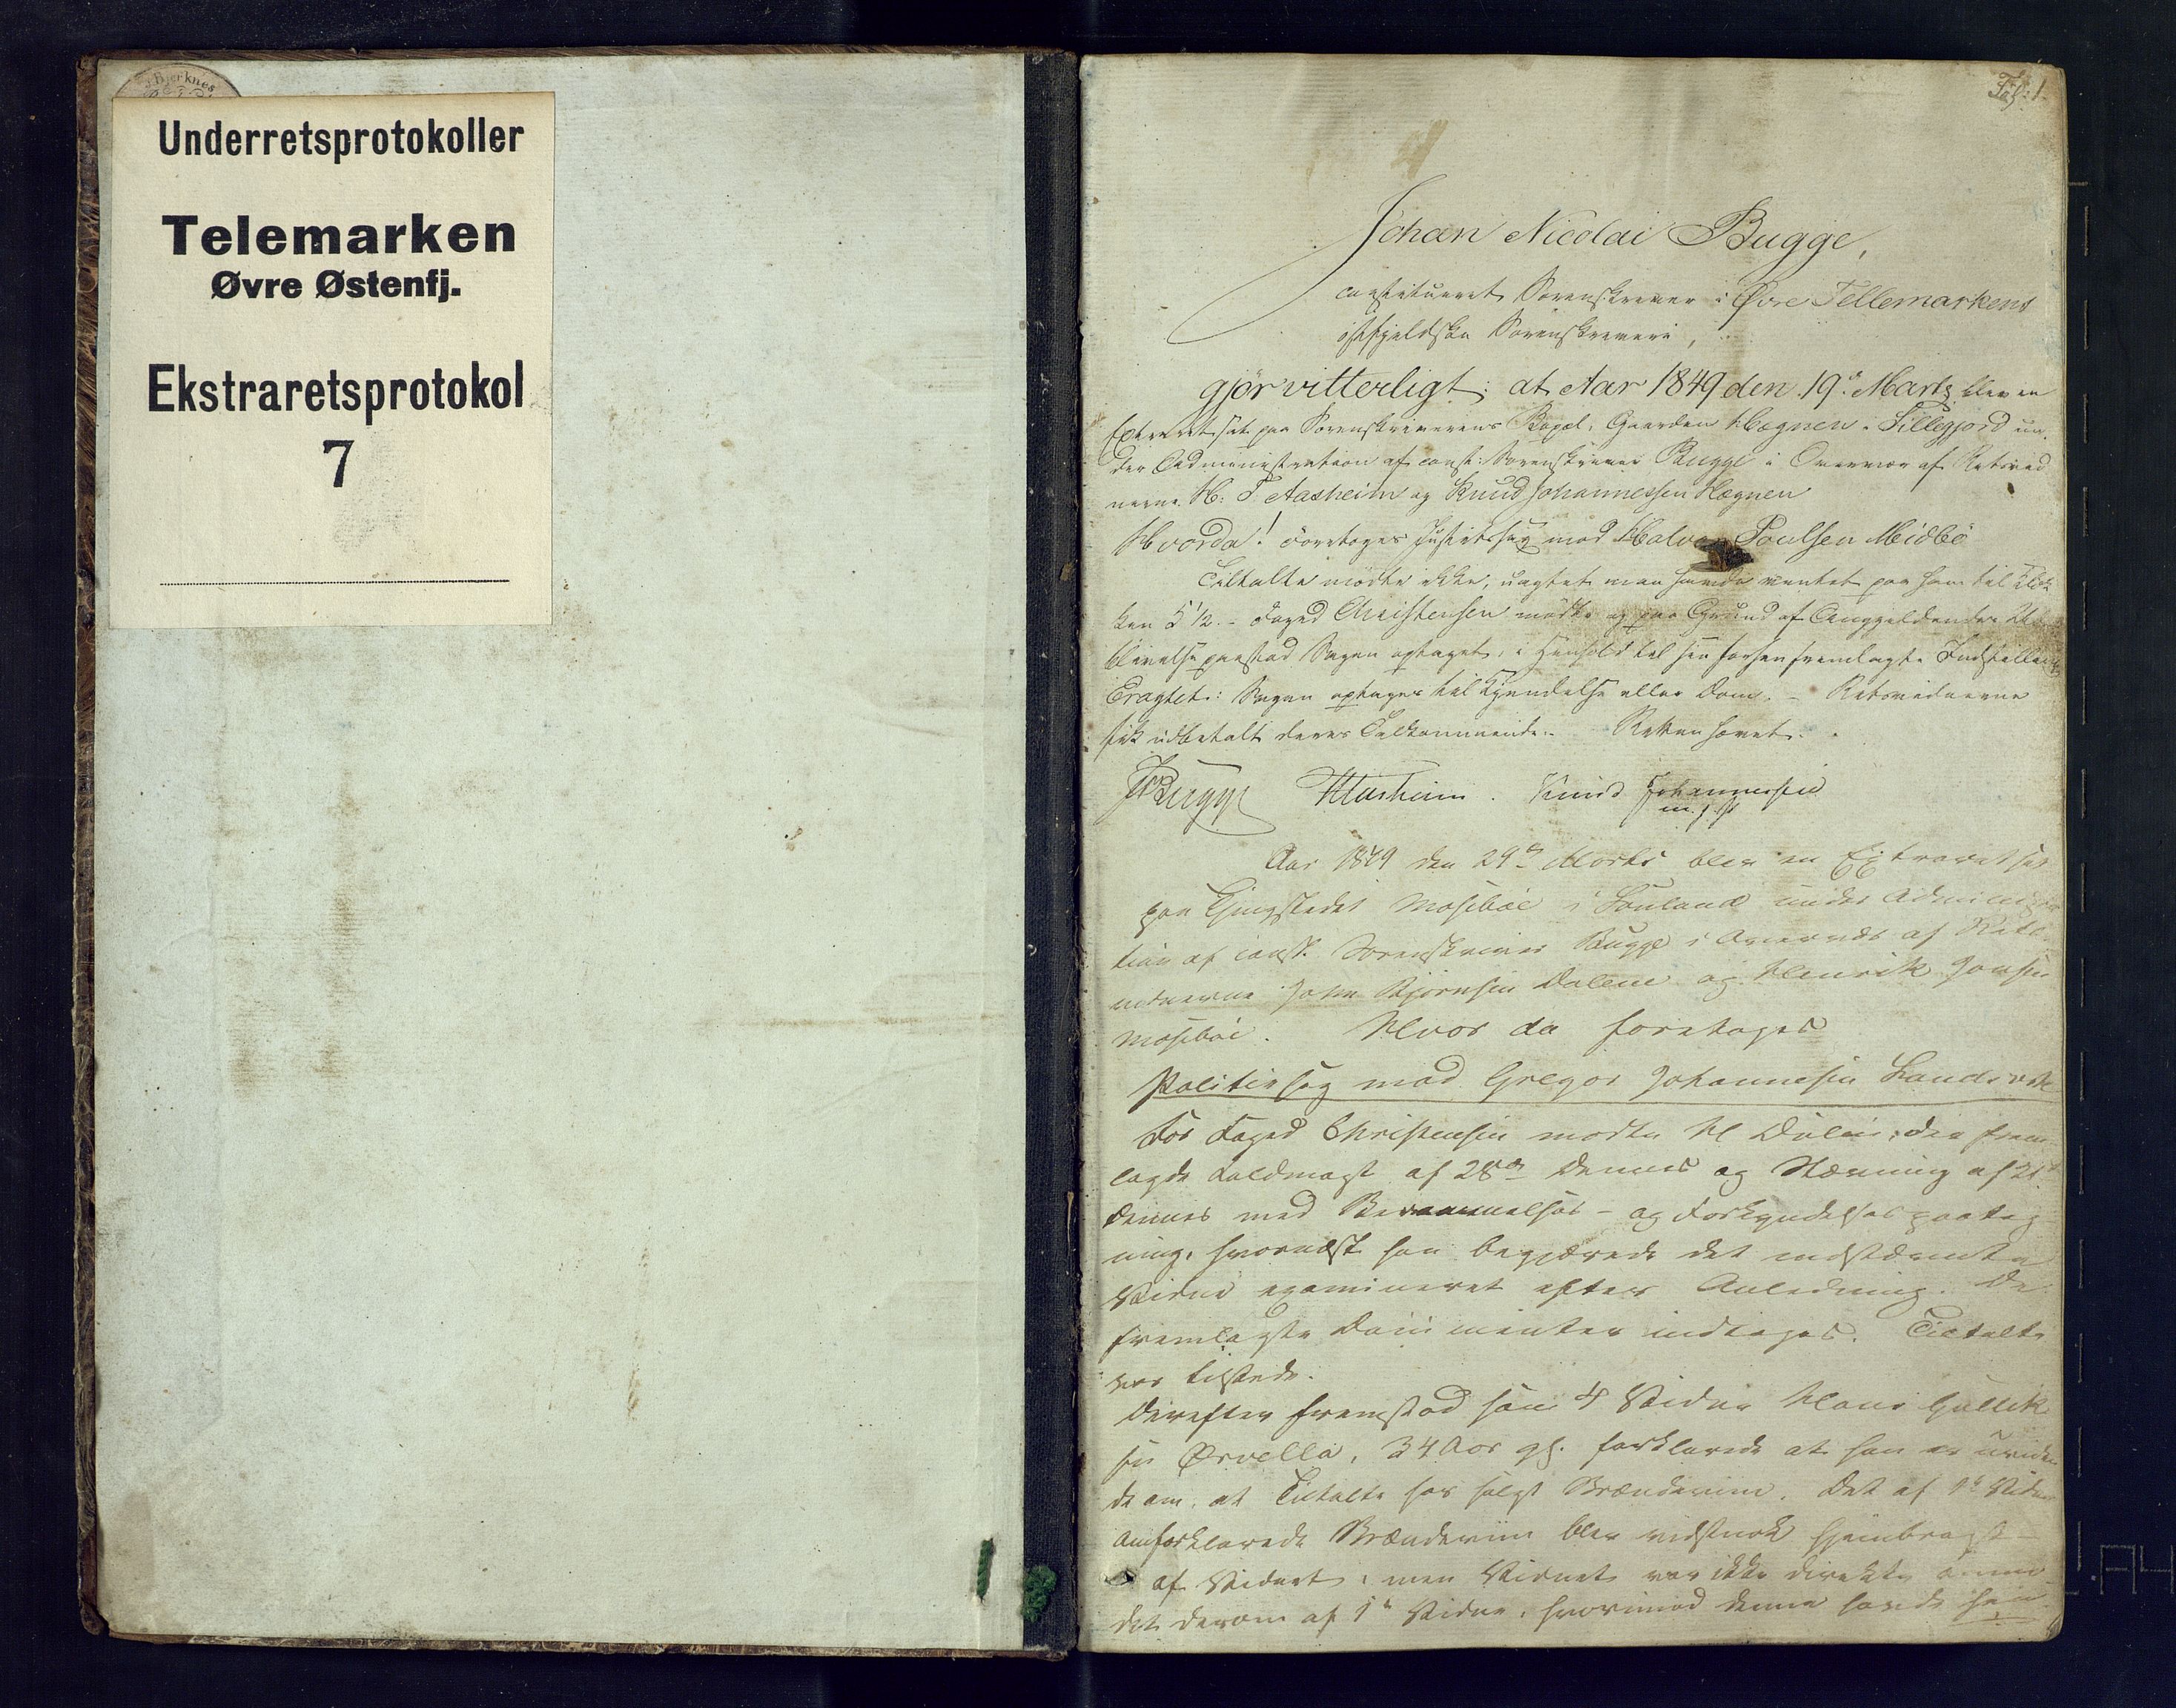 Bjerknes
Underretsprotokoller
Telemarken
Øvre Østenfj.
Ekstraretsprotokol
7
Fol: 1.
Johan Nicolai Bugge,
constitueret Sorenskriver i Øvre Tellemarkens
østfjeldske Sorenskriveri,
gjør vitterligt: at Aar 1849 den 19de Martz blev en
Extraret sat paa Sorenskriverens Bopæl, Gaarden Hægnen i Sillegjord un-
der Administration af const: Sorenskriver Bugge i Overvær af Retsvid-
nerne H. T. Aasheim og Knud Johannessen Hægnen
Hvorda! foretoges Justitssag mod Halvor Poulsen Midbö
Tiltalte mødte ikke, uagtet man havde ventet paa ham til Klok-
ken 5 1/2. - Foged Christensen mødte og paa Grund af Angjeldendes Ude-
blivelse paastod Sagen optaget, i Henhold til sin forhen fremlagte Indstilling
Eragtet: Sagen optages til Kjendelse eller Dom. - Retsvidnerne
fik udbetalt deres Tilkommende. - Retten hævet.
JNBugge HTAasheim. Knud Johannessen
m. f. P.
Aar 1849 den 29de Marts blev en Extraret sat
paa Thingstedet Mosebøe i Houland under Administra-
tion af const. Sorenskriver Bugge i Overvær af Rets-
vidnerne John Bjørnsen Dalene og Henrik Jonsen
Mosebøe. Hvor da foretoges
Politiesag mod Gregor Johannesen Landsverk
For Foged Christensen mødte H Dølen, der frem-
lagde Fuldmagt af 28de dennes og Stævning af 21
dennes med Berammelses- og Forkyndelsespaateg-
ning, hvornæst han begjærede det indstævnte
Vidne examineret efter Anledning. De
fremlagte Documenter indtages. Tiltalte
var tilstede.
Derefter fremstod som 4 Vidne Hans Gullik-
sen Ørvella, 34 Aar gl. forklarede at han er uviden-
de om, at Tiltalte har solgt Brændeviin. Det af 1ste Vidne
omforklarede Brændeviin blev vistnok hjembragt
af Vidnet, men Vidnet var ikke direkte anmo-
det derom af 1ste Vidne, hvorimod denne havde